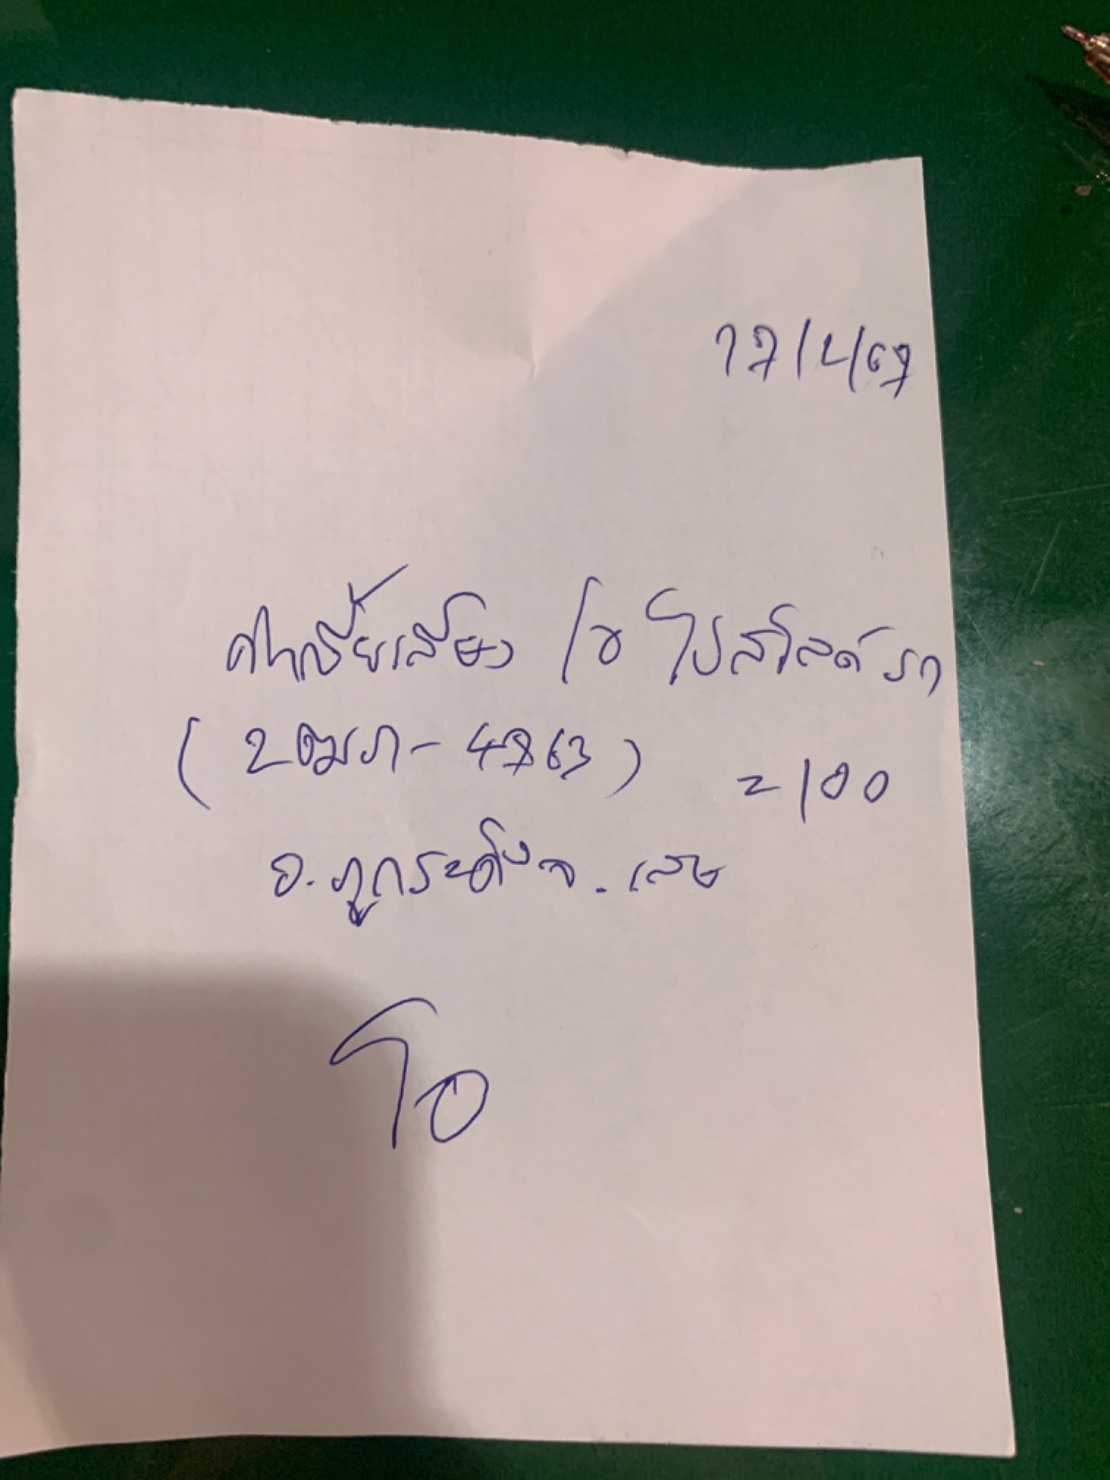 17/2/67
ค่าเบี้ยเลี้ยง โอ ไปสไลด์ รถ
(2ฒมภ-4763) = 100
อ.ภูกระดึง จ.เลย
โอ